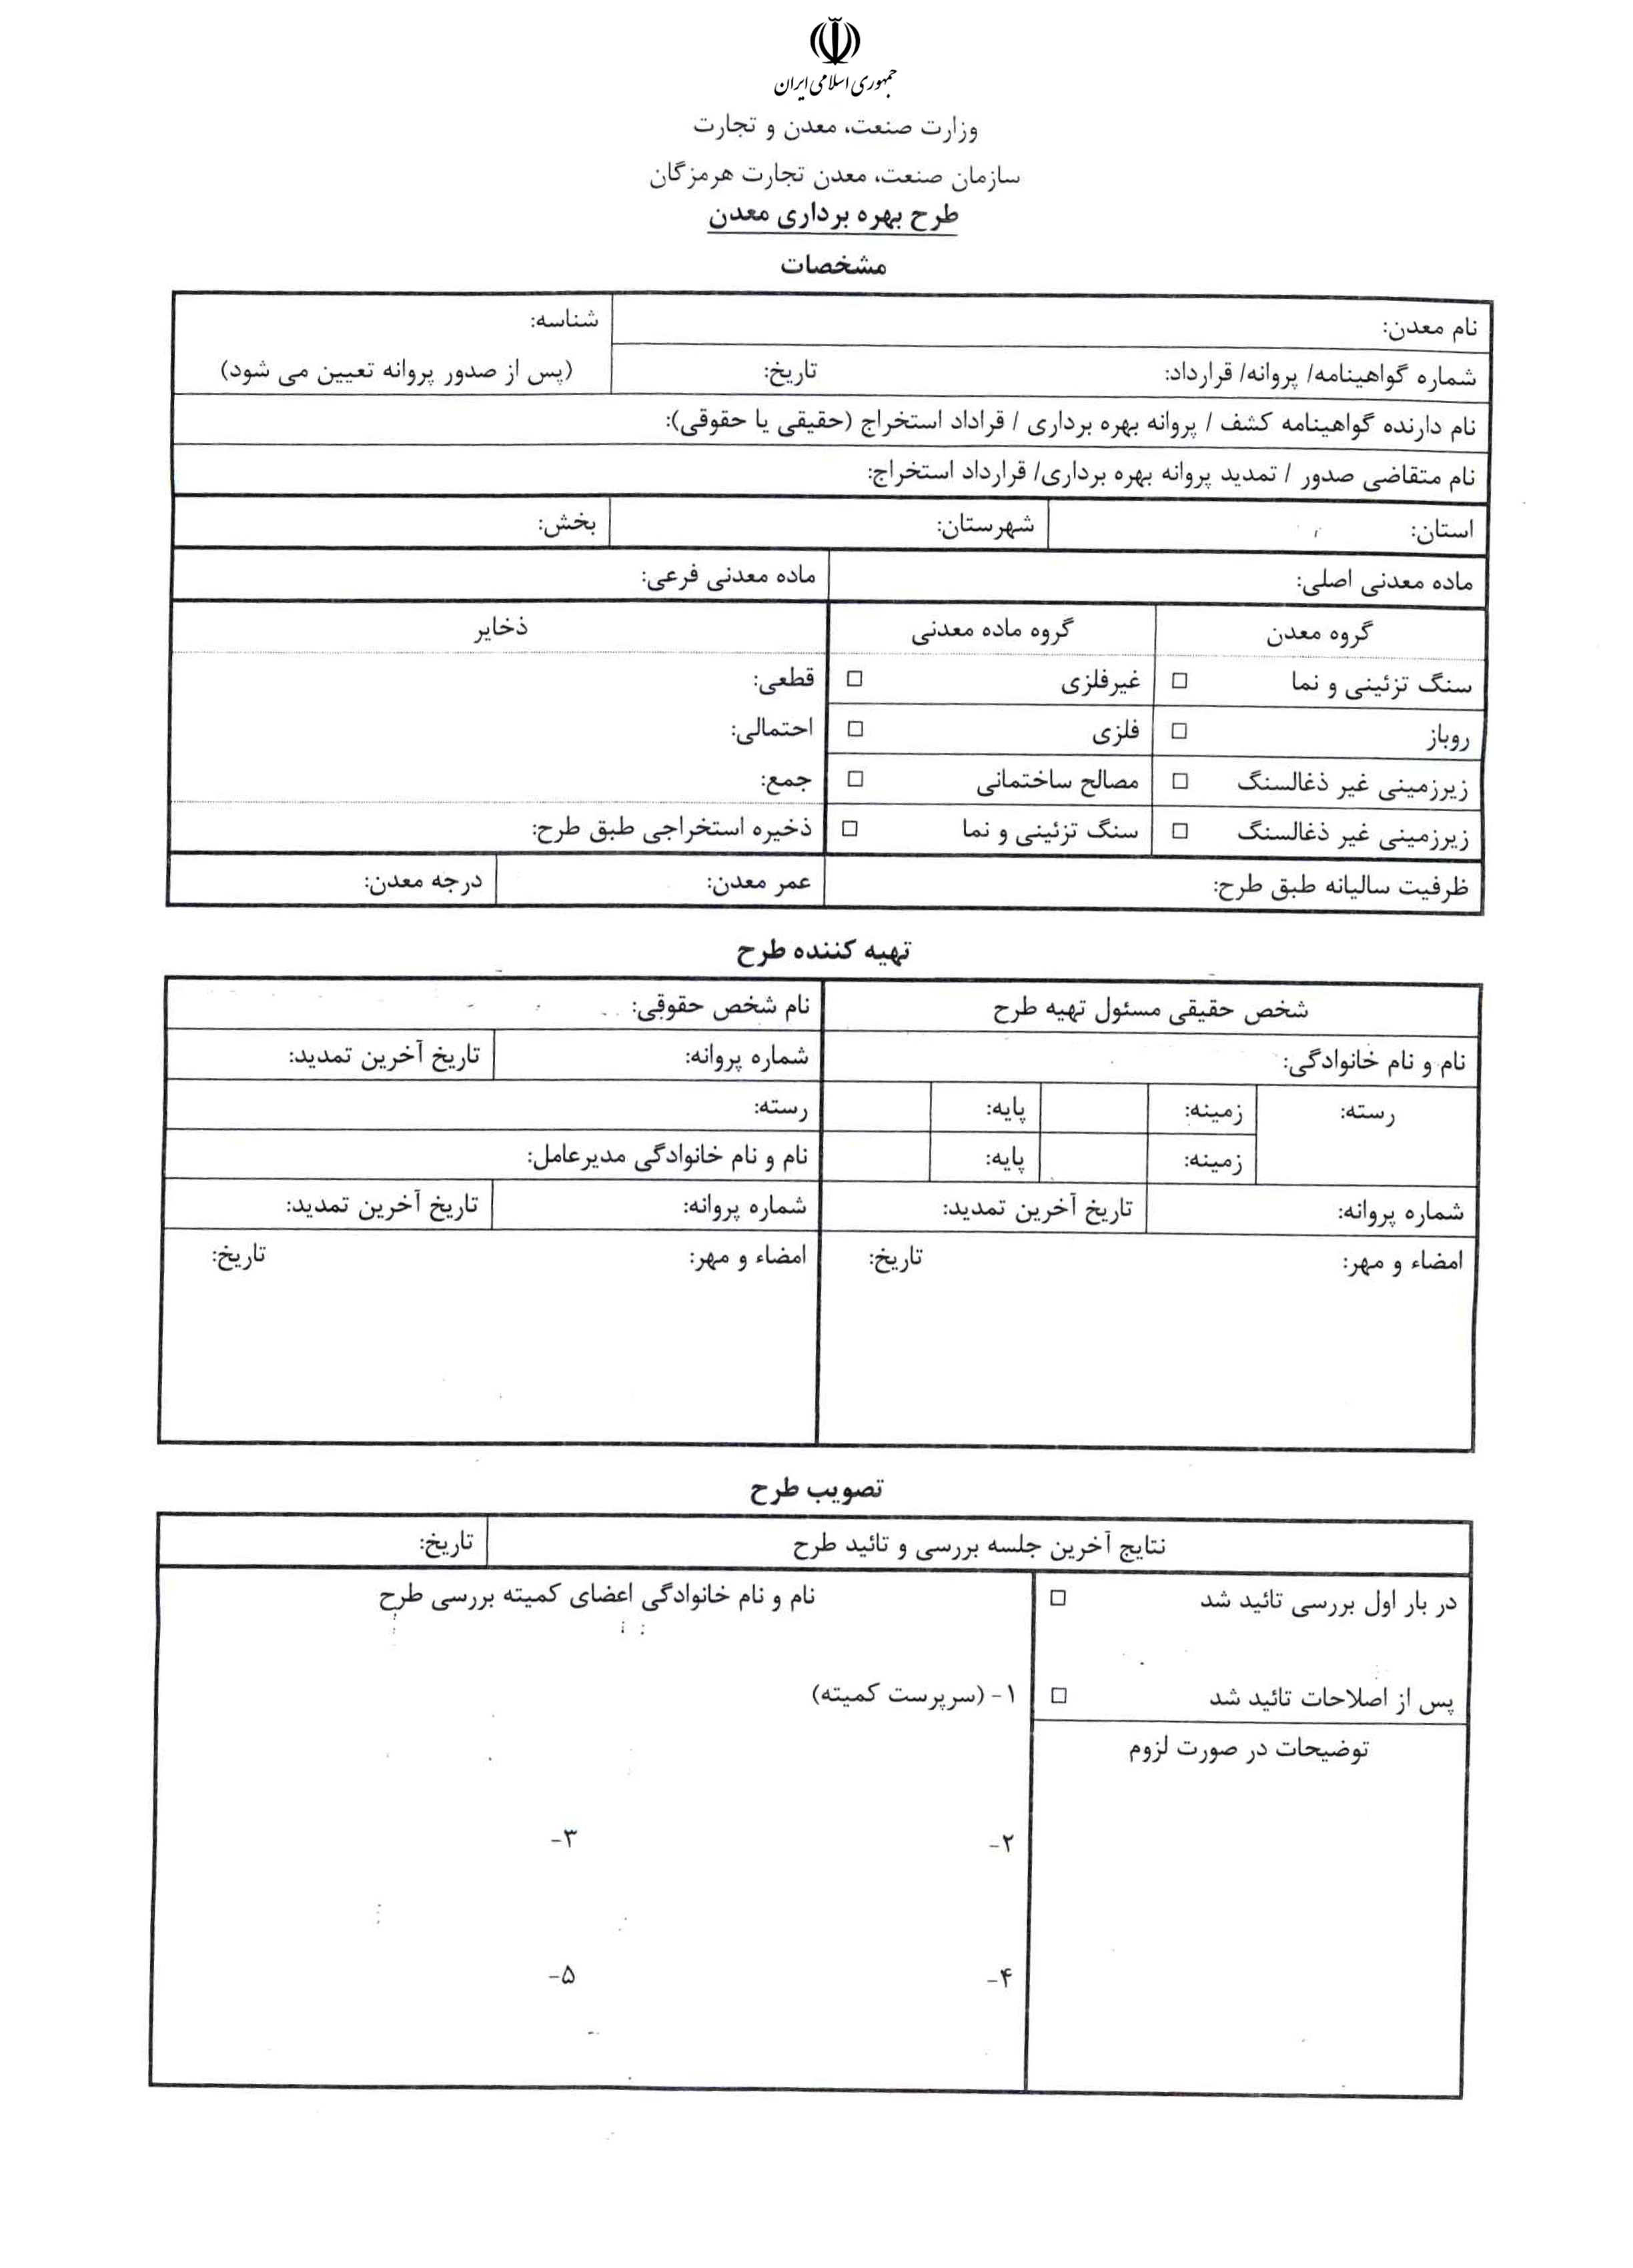 جمهوری اسلامی ایران
وزارت صنعت، معدن و تجارت
سازمان صنعت، معدن تجارت هرمزگان
طرح بهره برداری معدن
مشخصات
نام معدن:
شناسه:
شماره گواهینامه/ پروانه/ قرارداد: تاریخ:
(پس از صدور پروانه تعیین می شود)
نام دارنده گواهینامه کشف / پروانه بهره برداری / قراداد استخراج (حقیقی یا حقوقی):
نام متقاضی صدور / تمدید پروانه بهره برداری/ قرارداد استخراج:
استان: شهرستان: بخش:
ماده معدنی اصلی: ماده معدنی فرعی:
گروه معدن گروه ماده معدنی ذخایر
سنگ تزئینی و نما □ غیرفلزی □ قطعی:
روباز □ فلزی □ احتمالی:
زیرزمینی غیر ذغالسنگ □ مصالح ساختمانی □ جمع:
زیرزمینی غیر ذغالسنگ □ سنگ تزئینی و نما □ ذخیره استخراجی طبق طرح:
ظرفیت سالیانه طبق طرح: عمر معدن: درجه معدن:
تهیه کننده طرح
شخص حقیقی مسئول تهیه طرح نام شخص حقوقی:
نام و نام خانوادگی: شماره پروانه: تاریخ آخرین تمدید:
رسته: زمینه: پایه: رسته:
زمینه: پایه: نام و نام خانوادگی مدیرعامل:
شماره پروانه: تاریخ آخرین تمدید: شماره پروانه: تاریخ آخرین تمدید:
امضاء و مهر: تاریخ: امضاء و مهر: تاریخ:
تصویب طرح
نتایج آخرین جلسه بررسی و تائید طرح تاریخ:
در بار اول بررسی تائید شد □ نام و نام خانوادگی اعضای کمیته بررسی طرح
پس از اصلاحات تائید شد □ ۱- (سرپرست کمیته)
توضیحات در صورت لزوم
۲- ۳-
۴- ۵-